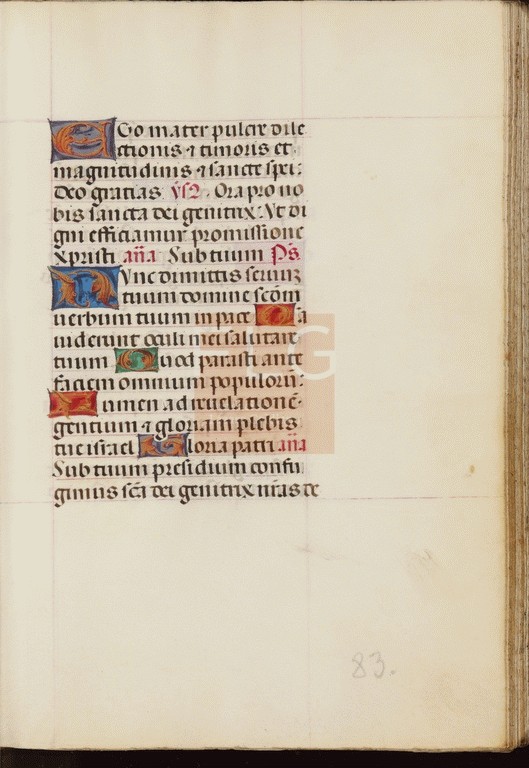 Ego mater pulcre dile
ctionis ⁊ timoris et
magnitudinis ⁊ sancte spei:
Deo gratias. v̄s℟. Ora pro no
bis sancta dei genitrix: Vt di
gni efficiamur promissione
xpristi an̄a Sub tuum Ps̄.
Nunc dimittis seruuꝫ
tuum domine scd̄m
uerbum tuum in pace Quia
uiderunt oculi mei salutare
tuum Quod parasti ante
faciem omnium populorū:
Lumen ad reuelationē
gentium ⁊ gloriam plebis
tue israel Gloria patri an̄a
Sub tuum presidium confu
gimus sc̄a dei genitrix nr̄as de
FLG
83.